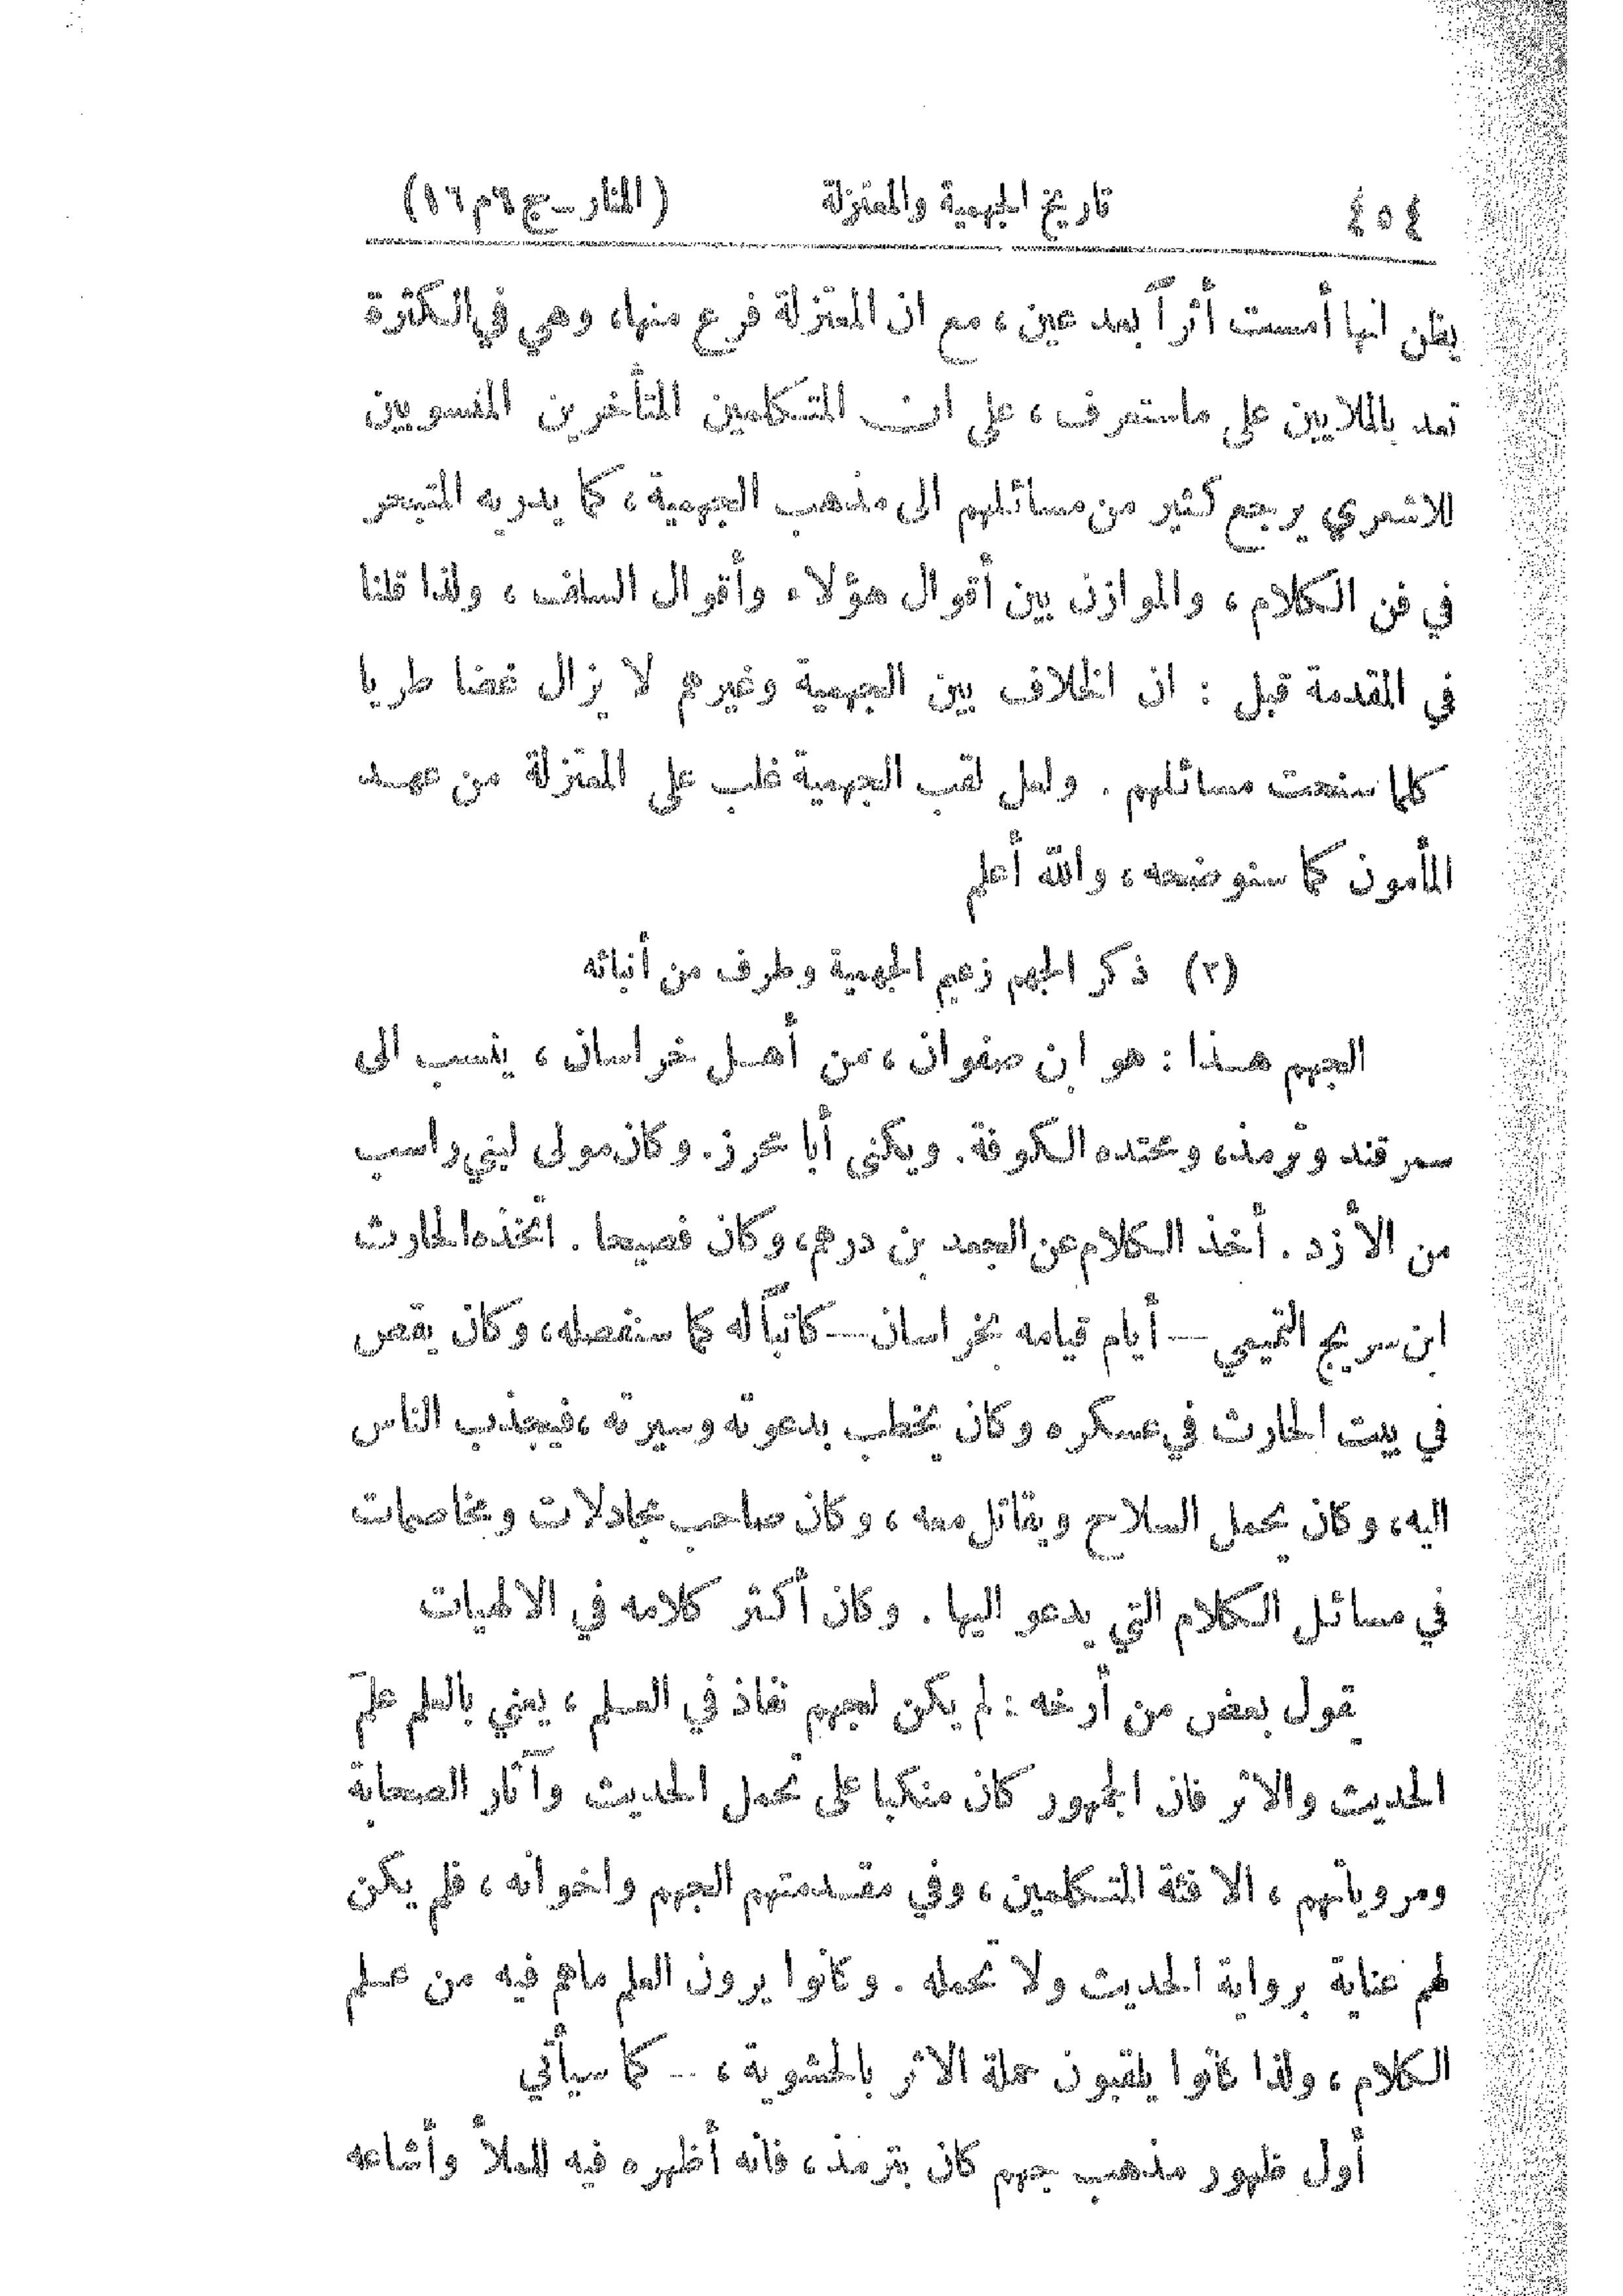 ٤٥٤ تاريخ الجهمية والمعتزلة (المنار ـ ج ٦ م ١٦)
يظن انها أمست أثراً بعد عين، مع ان المعتزلة فرع منها، وهي في الكثرة
تعد بالملايين على ماستعرف، على ان المتكلمين المتأخرين المنسوبين
للاشعري يرجع كثير من مسائلهم الى مذهب الجهمية، كما يدريه المتبحر
في فن الكلام، والموازن بين أقوال هؤلاء وأقوال السلف، ولذا قلنا
في المقدمة قبل : ان الخلاف بين الجهمية وغيرهم لا يزال غضا طريا
كلما سنحت مسائلهم . ولعل لقب الجهمية غلب على المعتزلة من عهد
المأمون كما سنوضحه، والله أعلم
(٢) ذكر الجهم زعيم الجهمية وطرف من أنبائه
الجهم هذا : هو ابن صفوان، من أهل خراسان، ينسب الى
سمرقند وترمذ، ومحتده الكوفة. ويكنى أبا محرز. وكان مولى لبني راسب
من الأزد . أخذ الكلام عن الجعد بن درهم، وكان فصيحا . اتخذه الحارث
ابن سريج التميمي — أيام قيامه بخراسان — كاتباً له كما سنفصله، وكان يقص
في بيت الحارث في عسكره وكان يخطب بدعوته وسيرته، فيجذب الناس
اليه، وكان يحمل السلاح ويقاتل معه، وكان صاحب مجادلات ومخاصمات
في مسائل الكلام التي يدعو اليها . وكان أكثر كلامه في الالهيات
يقول بعض من أرخه : لم يكن لجهم نفاذ في العلم، يعني بالعلم علمَ
الحديث والاثر فان الجمهور كان منكبا على تحمل الحديث وآثار الصحابة
ومروياتهم، الا فئة المتكلمين، وفي مقدمتهم الجهم واخوانه، فلم يكن
لهم عناية برواية الحديث ولا تحمله . وكانوا يرون العلم ماهم فيه من علم
الكلام، ولذا كانوا يلقبون حملة الاثر بالحشوية، — كما سيأتي
أول ظهور مذهب جهم كان بترمذ، فانه أظهره فيه للملأ وأشاعه